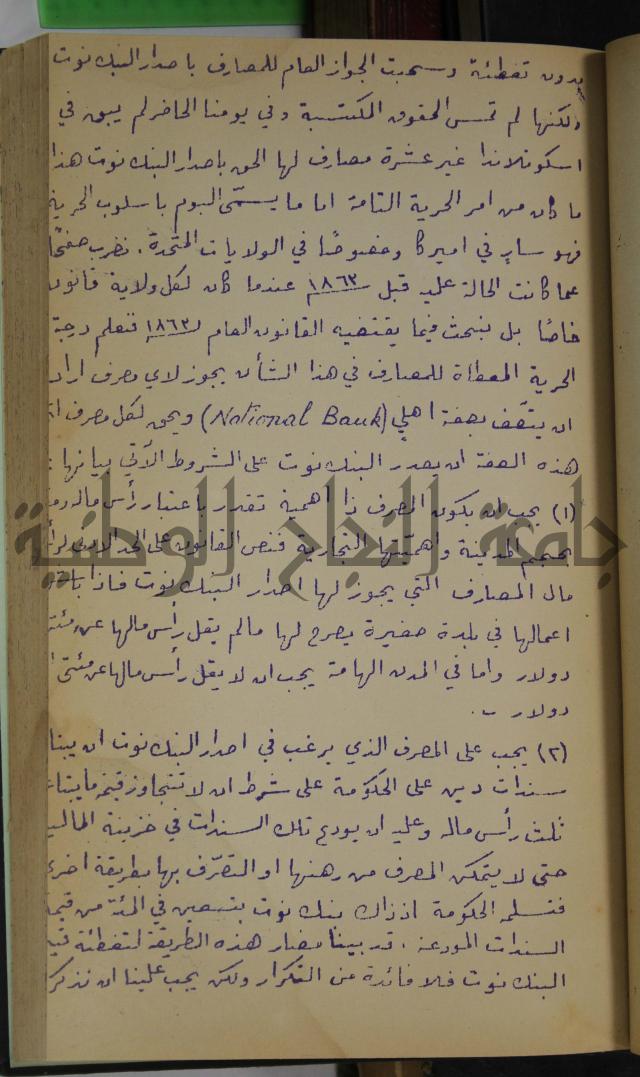 بدون تغطئة وسحبت الجواز العام للمصارف باصدار البنك نوت
ولكنها لم تمس الحقوق المكتسبة وفي يومنا الحاضر لم يبق في
اسكوتلاندا غير عشرة مصارف لها الحق باصدار البنك نوت هذا
ما كان من امر الحرية التامة اما ما يسمّى اليوم باسلوب الحرية
فهو ساير في اميركا وخصوصًا في الولايات المتحدة. نضرب صفحًا
عما كانت الحالة عليه قبل ١٨٦٣ عندما كان لكل ولاية قانون
خاصًا بل نبحث فيما يقتضيه القانون العام ١٨٦٣ فنعلم درجة
الحرية المعطاة للمصارف في هذا الشأن يجوز لاي مصرف اراد
ان يتصّف بصفة اهلي (National Bank) ويحق لكل مصرف
هذه الصفة ان يصدر البنك نوت على الشروط الآتي بيانها:
(١) يجب ان يكون المصرف ذا اهمية تقدر باعتبار رأس ماله
بحجم المدينة واهميّتها التجارية فنص القانون على الحد الادنى
مال المصارف التي يجوز لها اصدار البنك نوت فاذا
اعمالها في بلدة صغيرة يصرح لها مالم يقل رأس مالها عن مئة
دولار واما في المدن الهامة يجب ان لا يقل رأس مالها عن مئتي
دولار.
(٢) يجب على المصرف الذي يرغب في اصدار البنك نوت ان
سندات دين على الحكومة على شرط ان لا تتجاوز قيمة
ثلث رأس ماله وعليه ان يودع تلك السندات في خزينة المالية
حتى لا يتمكن المصرف من رهنها او التصرّف بها بطريقة اخرى
فتسلمه الحكومة اذ ذاك بنك نوت بتسعين في المئة من قيمة
السندات المودعة. قد بينا مضار هذه الطريقة لتغطئة
البنك نوت فلا فائدة من التكرار ولكن يجب علينا ان نذكر
جامعة النجاح الوطنية